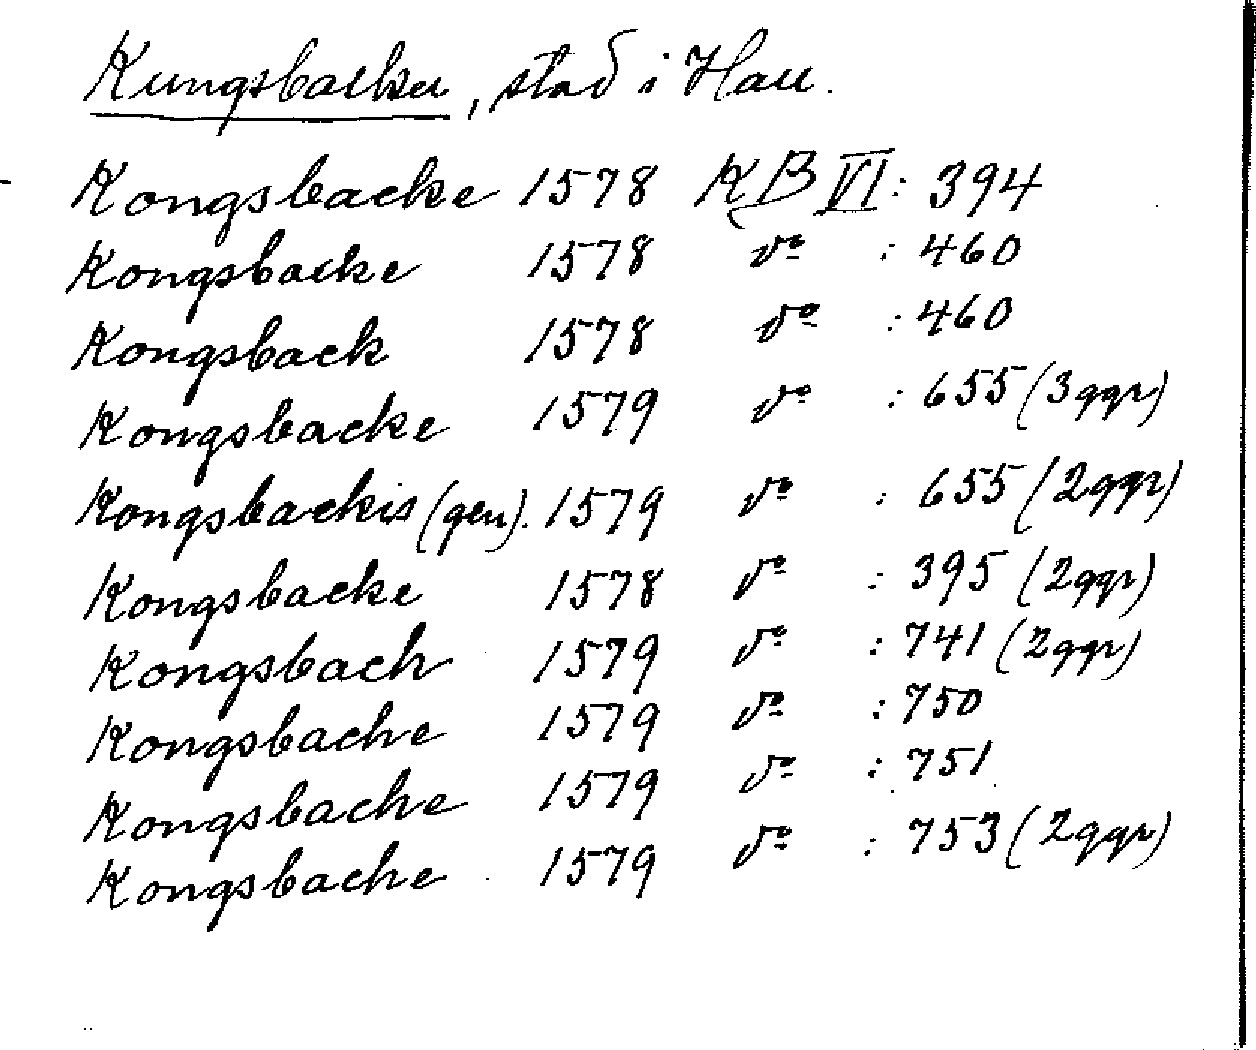 Kungsbacka, stad i Hall.
Kongsbacke 1578 KB VI: 394
Kongsbacke 1578 do : 460
Kongsback 1578 do : 460
Kongsbacke 1579 do : 655 (3 ggr)
Kongsbackis (gen). 1579 do : 655 (2 ggr)
Kongsbacke 1578 do : 395 (2 ggr)
Kongsbach 1579 do : 741 (2 ggr)
Kongsbache 1579 do : 750
Kongsbache 1579 do : 751
Kongsbache 1579 do : 753 (2 ggr)